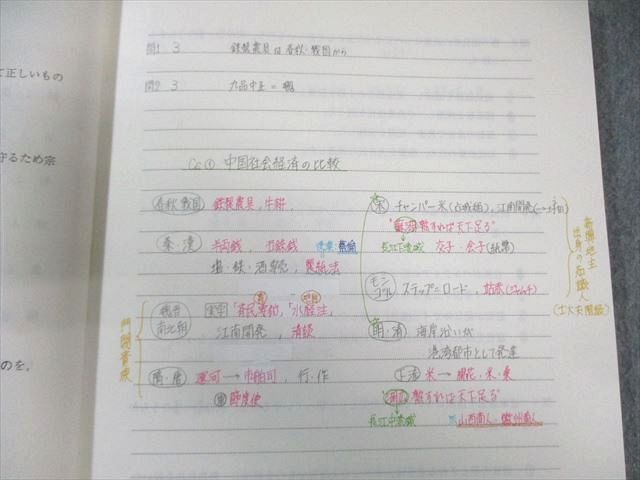 て正しいもの
守るため宗
のを,
問1 3 鉄製農具は春秋・戦国から
問2 3 九品中正=魏
Co① 中国社会経済の比較
春秋 戦国 鉄製農具, 牛耕,
秦・漢 半両銭, 五銖銭 後漢:蔡倫
塩・鉄・酒専売, 製紙法
魏晋南北朝 実学「斉民要術」「水経注」,
農
地理
江南開発, 清談
門閥貴族
隋・唐 運河→市舶司, 行・作
節度使
宋 チャンパー米(占城稲), 江南開発
"蘇湖熟すれば天下足る"
長江下流域 交子・会子(紙幣)
モンゴル ステップ=ロード, 站赤(ジャムチ)
明・清 海岸沿いが
港湾都市として発達
米→ 綿花・米・桑
"湖広熟すれば天下足る"
長江中流域 山西商人・徽州商人
新興地主出身の知識人
(士大夫階級)